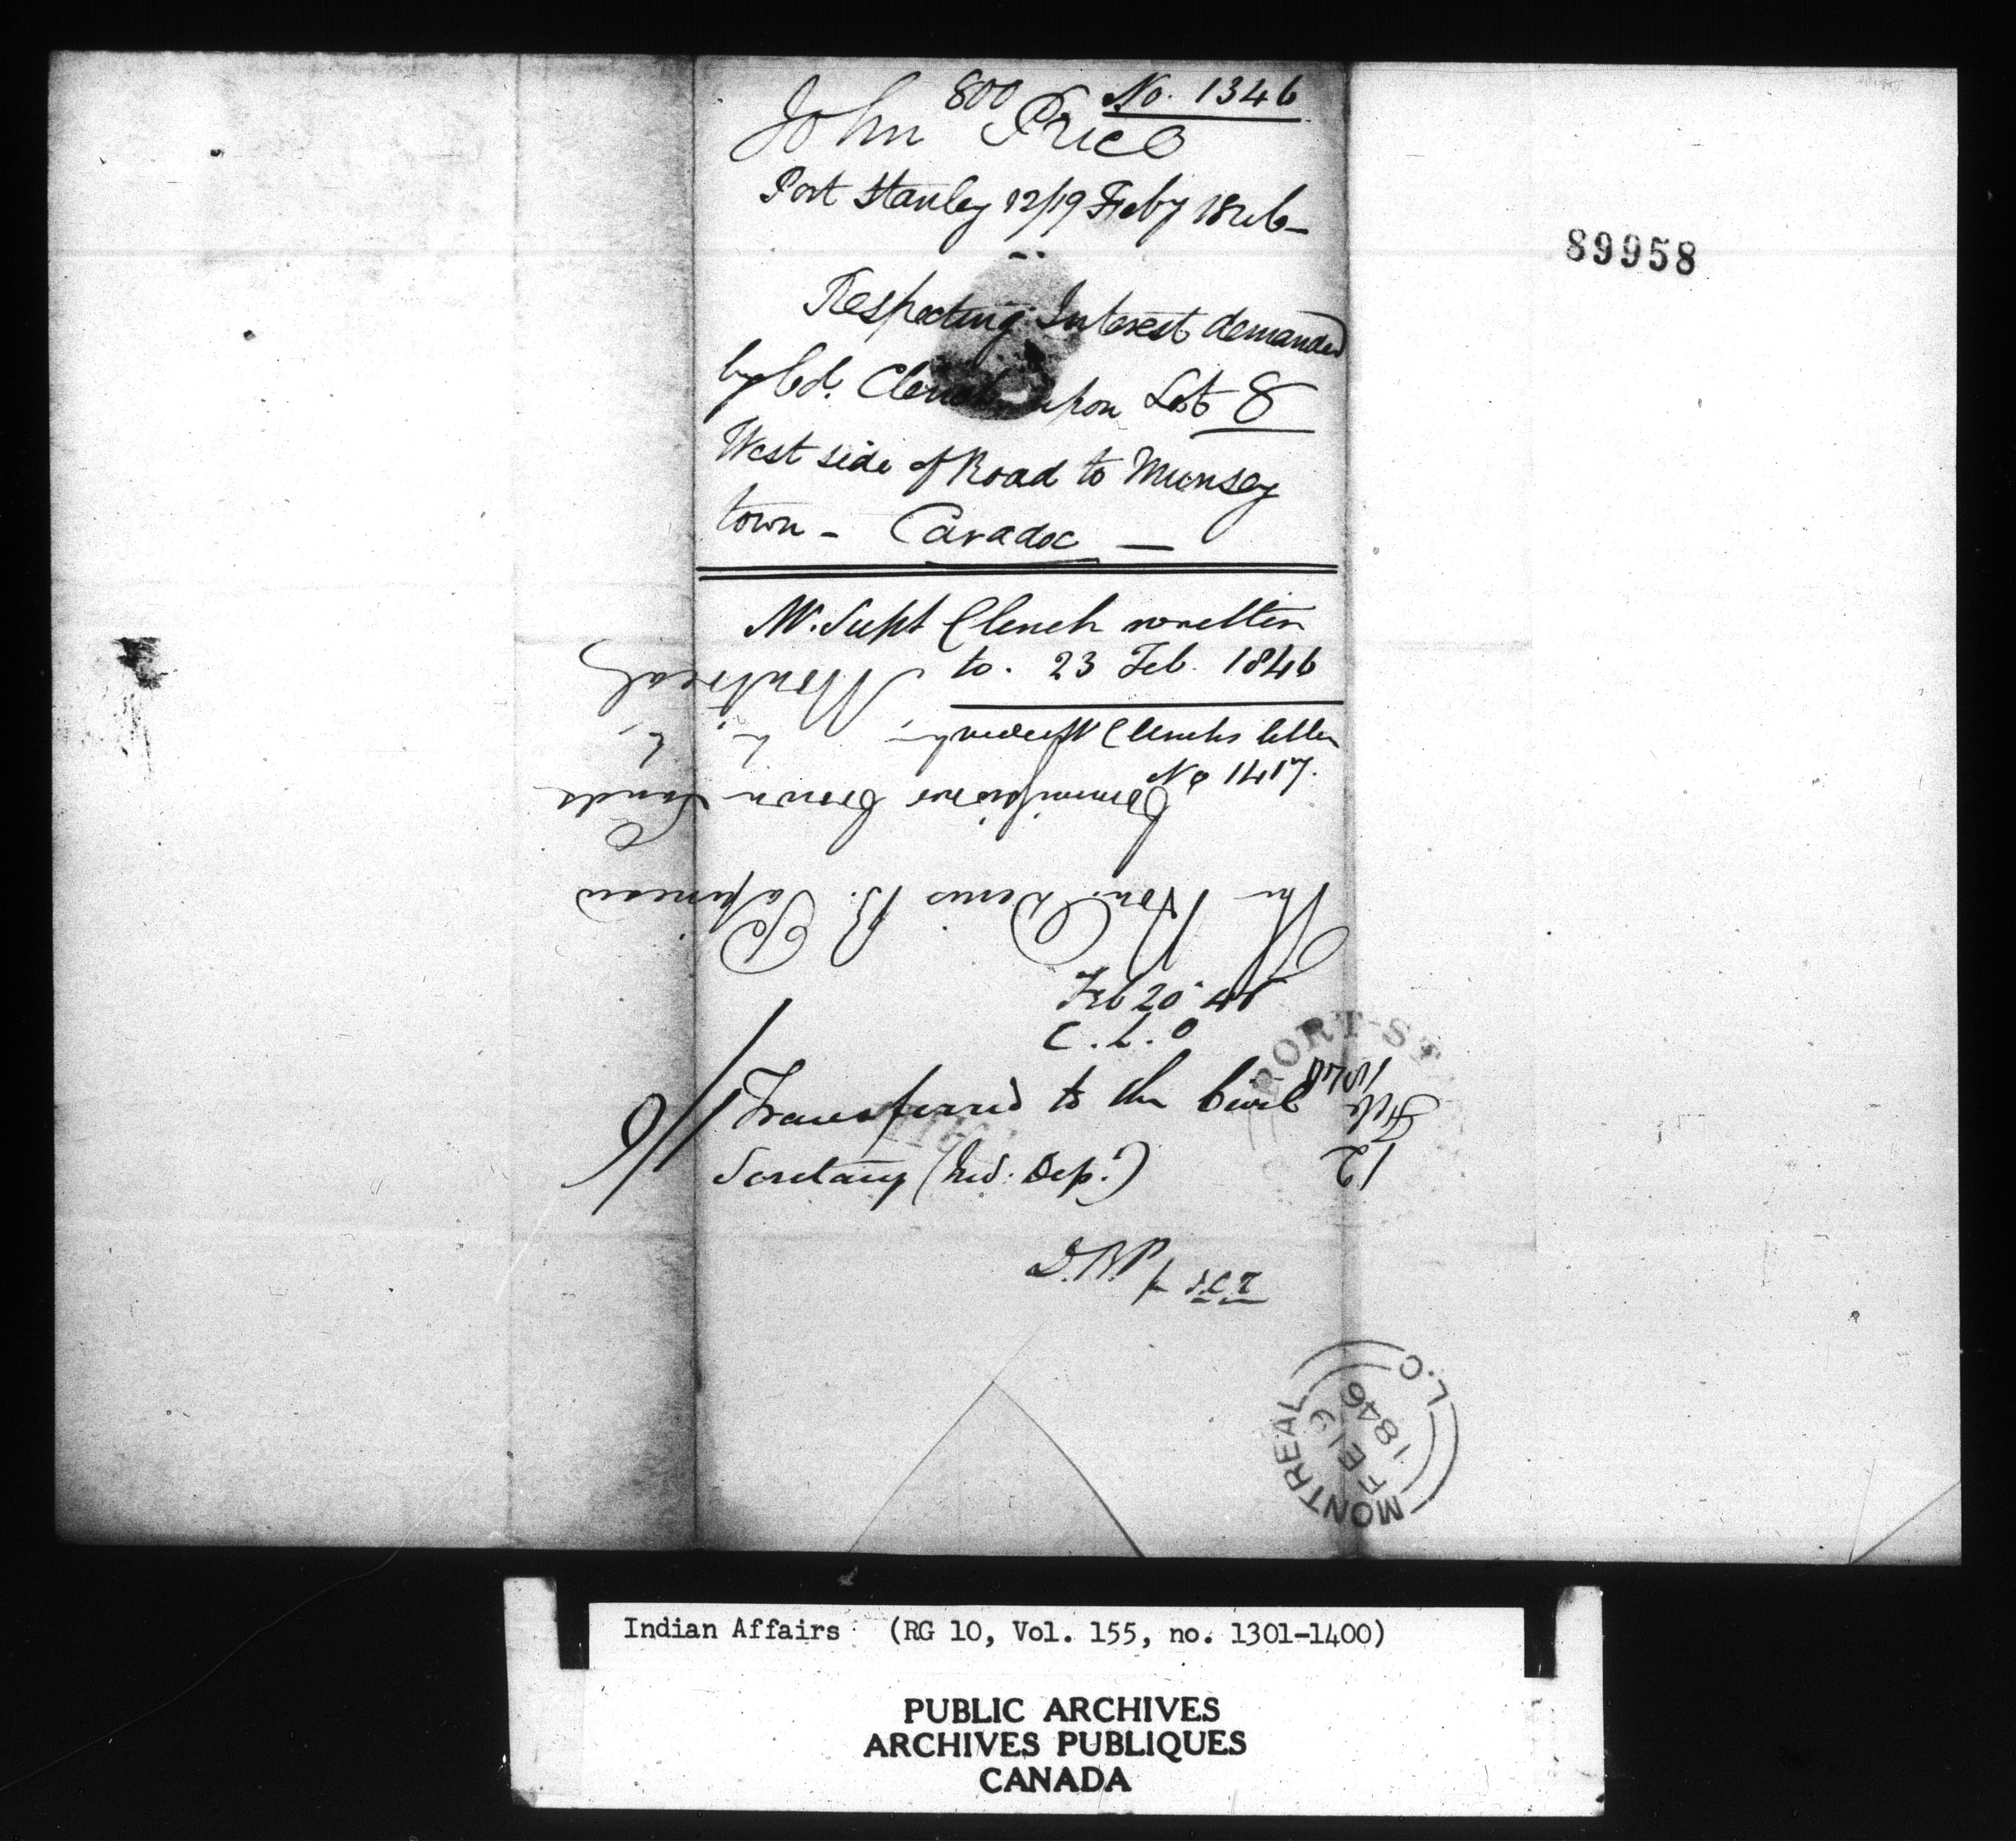 800 No. 1346
John Price
Port Stanley 12/19 Feby 1846 –
Respecting Interest demanded
by Col. Clench upon Lot 8
West side of Road to Munsey
town – Caradoc —
Mr. Supt Clench written
to. 23 Feb. 1846
Clench's letter
No 1417.
The Hon. Denis B. Papineau
Commissioner Crown Lands
Montreal
Feb 20 46
C.L.O
Transferred to the Civil
Secretary (Ind. Dep.)
D.B.P
PORT-ST
12
Feb
MONTREAL L.C
FE 19
1846
89958
Indian Affairs (RG 10, Vol. 155, no. 1301-1400)
PUBLIC ARCHIVES
ARCHIVES PUBLIQUES
CANADA